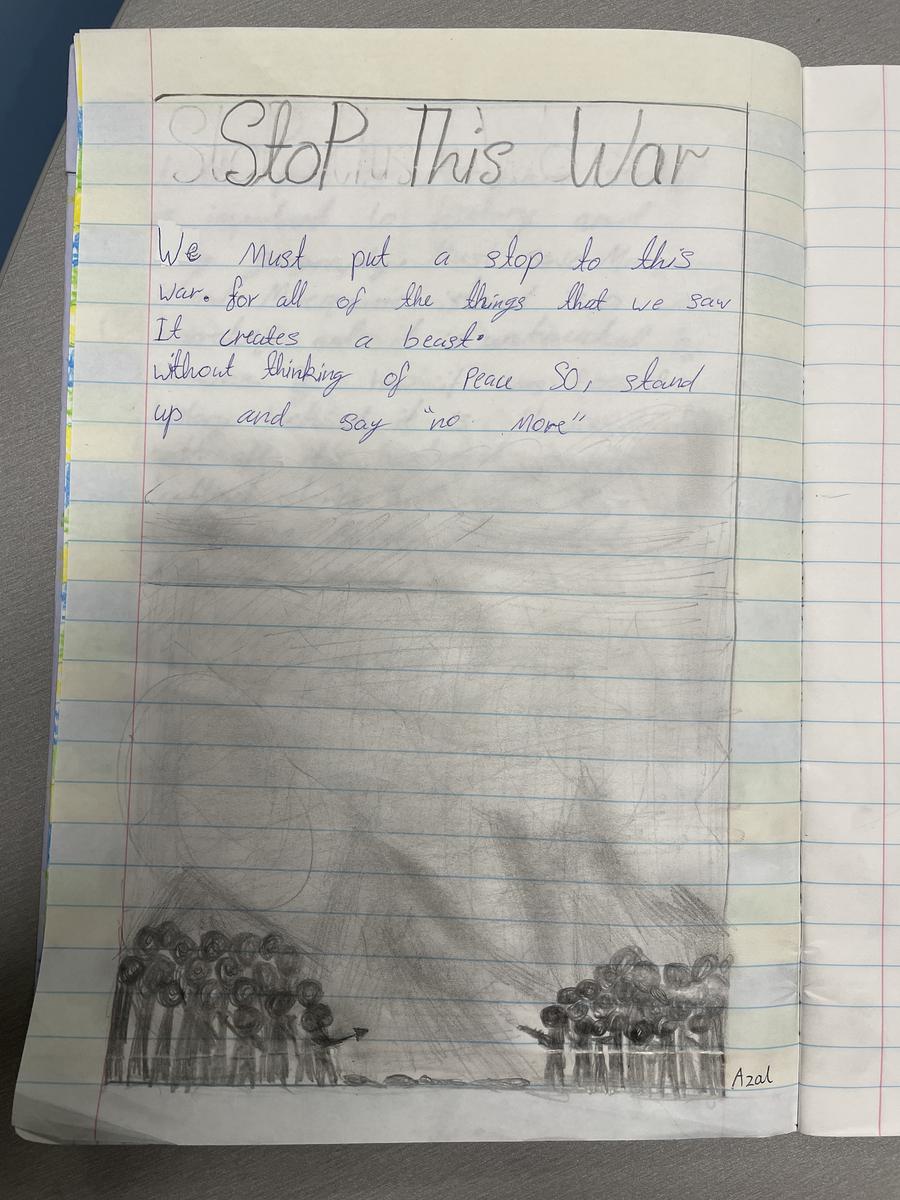 StoP This War
We Must put a stop to this
war. for all of the things that we saw
It creates a beast.
without thinking of Peace SO, stand
up and say "no More"
Azal